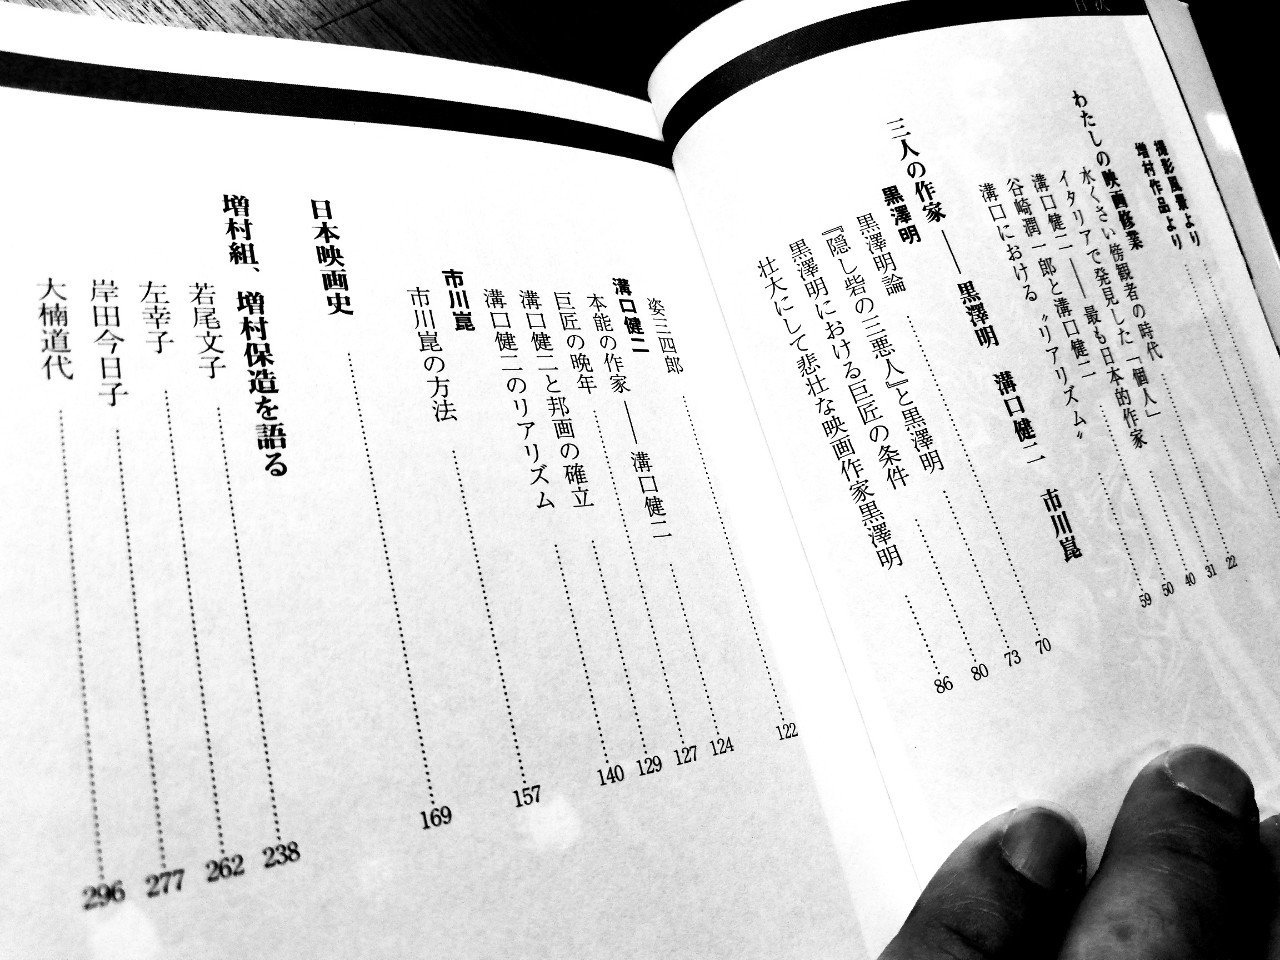 目次
撮影風景より
増村作品より
わたしの映画修業
水くさい傍観者の時代 22
イタリアで発見した「個人」 31
溝口健二――最も日本的作家 40
谷崎潤一郎と溝口健二 50
溝口における〝リアリズム〟 59
三人の作家――黒澤明 溝口健二 市川崑
黒澤明
黒澤明論 70
『隠し砦の三悪人』と黒澤明 73
黒澤明における巨匠の条件 80
壮大にして悲壮な映画作家黒澤明 86
姿三四郎 122
溝口健二
本能の作家――溝口健二 124
巨匠の晩年 127
溝口健二と邦画の確立 129
溝口健二のリアリズム 140
市川崑
市川崑の方法 157
日本映画史 169
増村組、増村保造を語る
若尾文子 238
左幸子 262
岸田今日子 277
大楠道代 296